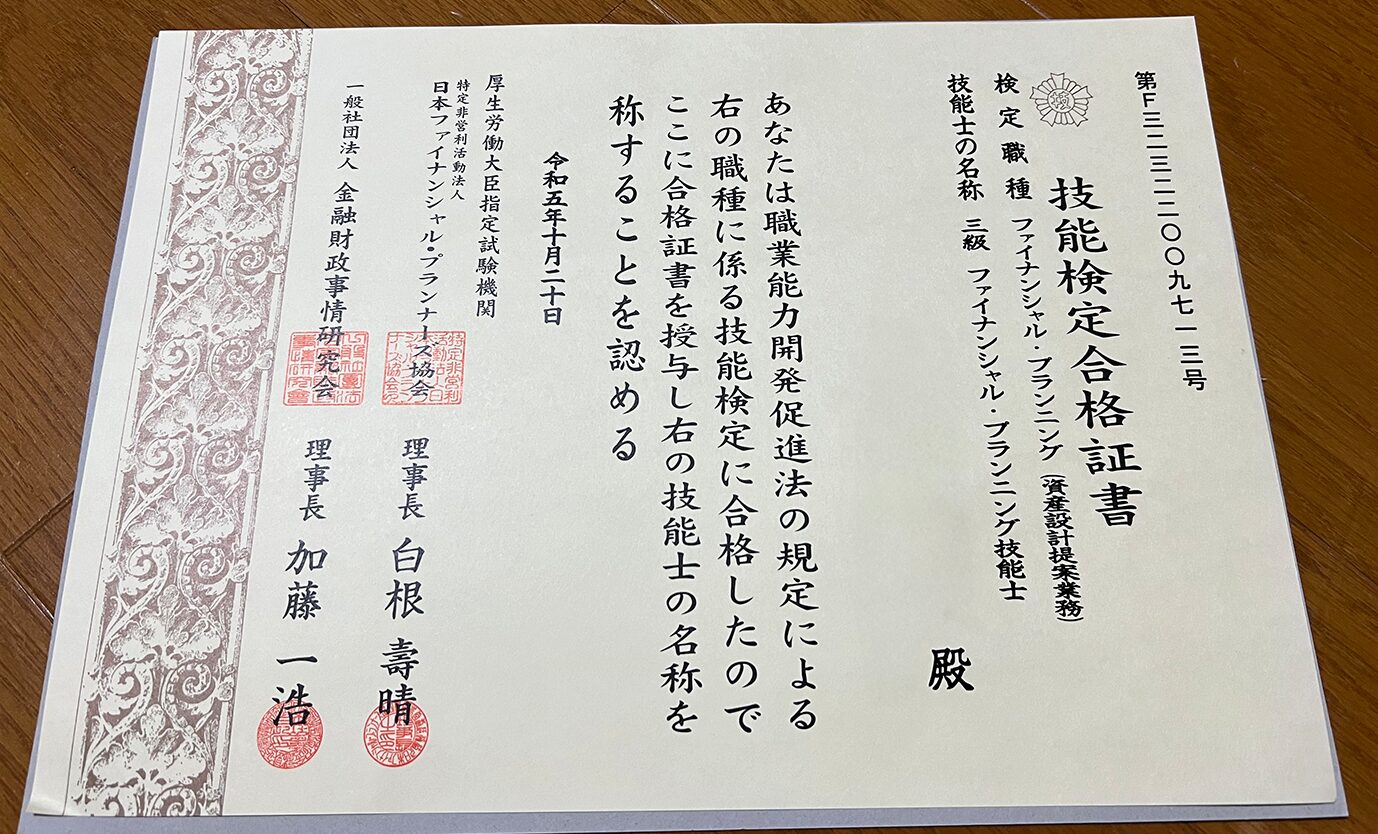 第F三二三二二〇〇九七一三号
技能検定合格証書
検定職種 ファイナンシャル・プランニング(資産設計提案業務)
技能士の名称 三級 ファイナンシャル・プランニング技能士
殿
あなたは職業能力開発促進法の規定による
右の職種に係る技能検定に合格したので
ここに合格証書を授与し右の技能士の名称を
称することを認める
令和五年十月二十日
厚生労働大臣指定試験機関
特定非営利活動法人
日本ファイナンシャル・プランナーズ協会 理事長 白根 壽晴
一般社団法人 金融財政事情研究会 理事長 加藤 一浩